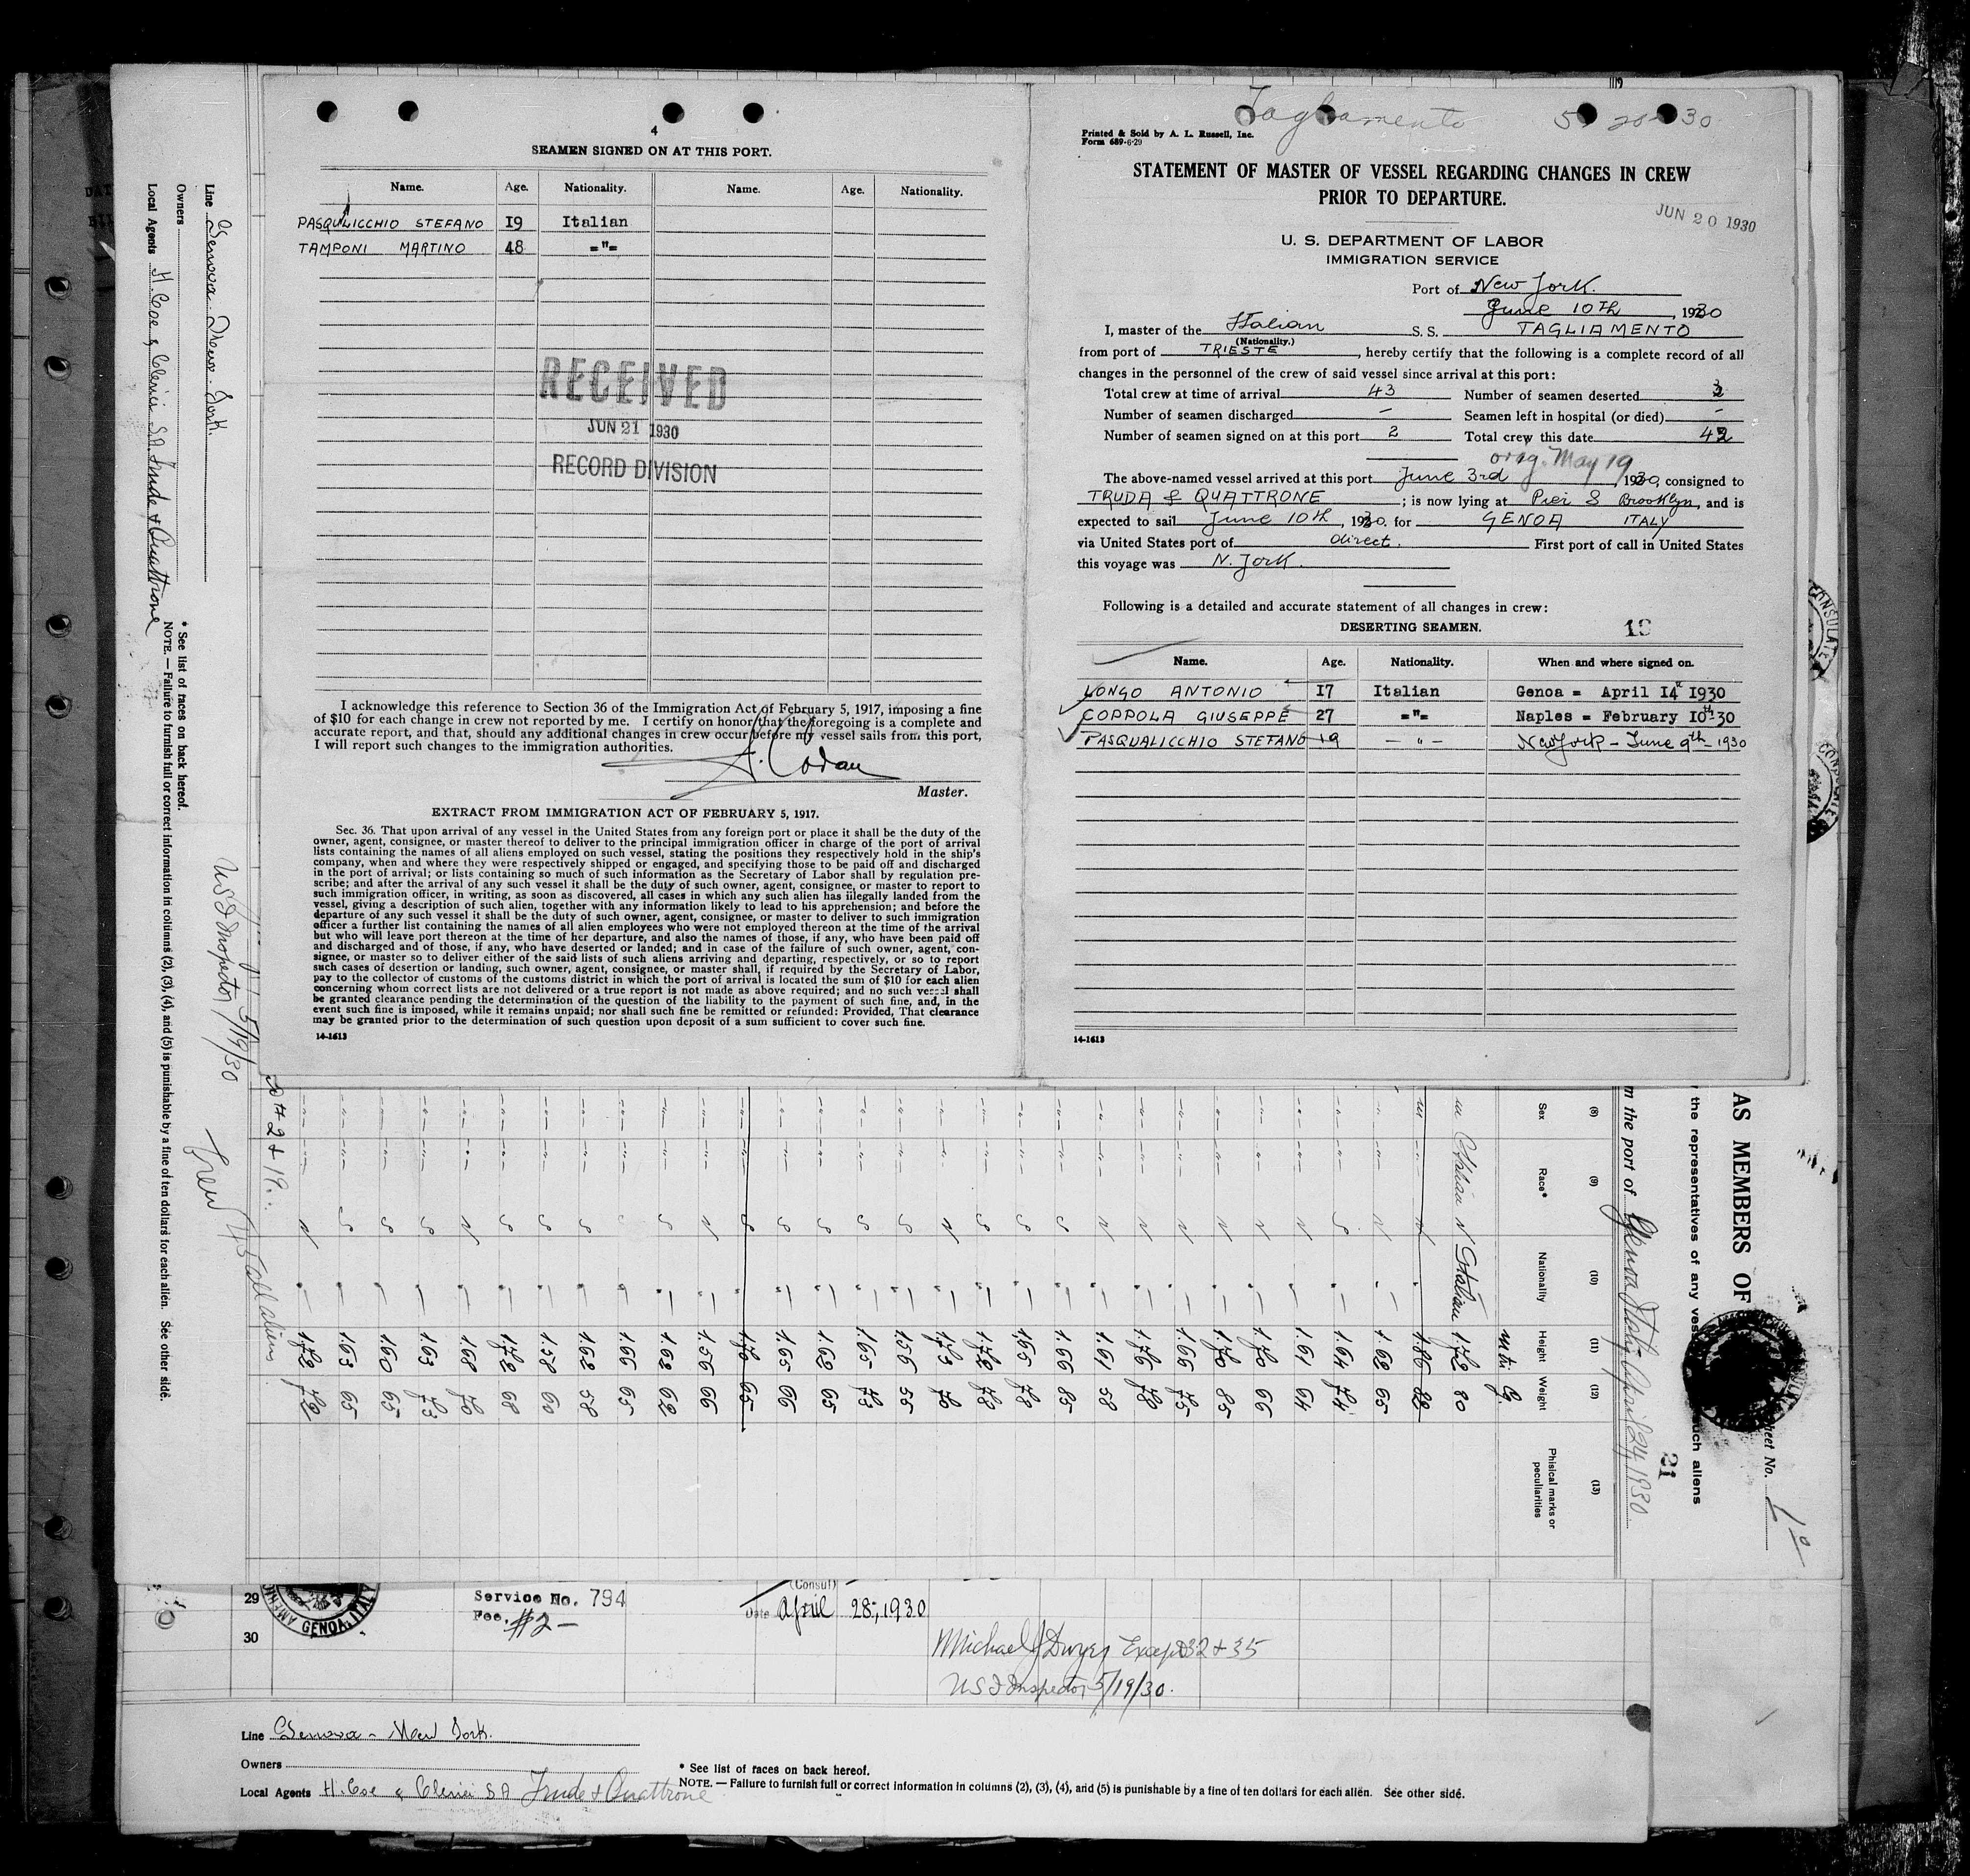 4
SEAMEN SIGNED ON AT THIS PORT.
Name. Age. Nationality. Name. Age. Nationality.
PASQULICCHIO STEFANO 19 Italian
TAMPONI MARTINO 48 ="=
RECEIVED
JUN 21 1930
RECORD DIVISION
I acknowledge this reference to Section 36 of the Immigration Act of February 5, 1917, imposing a fine
of $10 for each change in crew not reported by me. I certify on honor that the foregoing is a complete and
accurate report, and that, should any additional changes in crew occur before my vessel sails from this port,
I will report such changes to the immigration authorities.
A. Codan
Master.
EXTRACT FROM IMMIGRATION ACT OF FEBRUARY 5, 1917.
Sec. 36. That upon arrival of any vessel in the United States from any foreign port or place it shall be the duty of the
owner, agent, consignee, or master thereof to deliver to the principal immigration officer in charge of the port of arrival
lists containing the names of all aliens employed on such vessel, stating the positions they respectively hold in the ship's
company, when and where they were respectively shipped or engaged, and specifying those to be paid off and discharged
in the port of arrival; or lists containing so much of such information as the Secretary of Labor shall by regulation pre-
scribe; and after the arrival of any such vessel it shall be the duty of such owner, agent, consignee, or master to report to
such immigration officer, in writing, as soon as discovered, all cases in which any such alien has illegally landed from the
vessel, giving a description of such alien, together with any information likely to lead to his apprehension; and before the
departure of any such vessel it shall be the duty of such owner, agent, consignee, or master to deliver to such immigration
officer a further list containing the names of all alien employees who were not employed thereon at the time of the arrival
but who will leave port thereon at the time of her departure, and also the names of those, if any, who have been paid off
and discharged and of those, if any, who have deserted or landed; and in case of the failure of such owner, agent, con-
signee, or master so to deliver either of the said lists of such aliens arriving and departing, respectively, or so to report
such cases of desertion or landing, such owner, agent, consignee, or master shall, if required by the Secretary of Labor,
pay to the collector of customs of the customs district in which the port of arrival is located the sum of $10 for each alien
concerning whom correct lists are not delivered or a true report is not made as above required; and no such vessel shall
be granted clearance pending the determination of the question of the liability to the payment of such fine, and, in the
event such fine is imposed, while it remains unpaid; nor shall such fine be remitted or refunded: Provided, That clearance
may be granted prior to the determination of such question upon deposit of a sum sufficient to cover such fine.
14-1613
Tagliamento 5 20 30
Printed & Sold by A. L. Russell, Inc.
Form 689-6-29
STATEMENT OF MASTER OF VESSEL REGARDING CHANGES IN CREW
PRIOR TO DEPARTURE.
JUN 20 1930
U. S. DEPARTMENT OF LABOR
IMMIGRATION SERVICE
Port of New York.
June 10th, 1930
I, master of the Italian S. S. TAGLIAMENTO
(Nationality.)
from port of TRIESTE, hereby certify that the following is a complete record of all
changes in the personnel of the crew of said vessel since arrival at this port:
Total crew at time of arrival 43 Number of seamen deserted 3
Number of seamen discharged - Seamen left in hospital (or died) -
Number of seamen signed on at this port 2 Total crew this date 42
orig. May 19
The above-named vessel arrived at this port June 3rd, 1930, consigned to
TRUDA & QUATTRONE; is now lying at Pier S Brooklyn, and is
expected to sail June 10th, 1930. for GENOA ITALY
via United States port of direct. First port of call in United States
this voyage was N. York.
Following is a detailed and accurate statement of all changes in crew:
DESERTING SEAMEN.
Name. Age. Nationality. When and where signed on.
LONGO ANTONIO 17 Italian Genoa = April 14th 1930
COPPOLA GIUSEPPE 27 ="= Naples = February 10th-30
PASQUALICCHIO STEFANO 19 - " - New York - June 9th - 1930
14-1613
Line Genova - New York.
Owners
Local Agents H. Coe & Clerici S.A. Truda & Quattrone
* See list of races on back hereof.
NOTE. — Failure to furnish full or correct information in columns (2), (3), (4), and (5) is punishable by a fine of ten dollars for each alien. See other side.
US I Inspector 5/19/30
Crew 45 all aliens
AS MEMBERS OF
the representatives of any
such aliens
Sheet No. 1
21
m the port of Genoa Italy April 24, 1930
(8) (9) (10) (11) (12) (13)
Sex Race* Nationality Height Weight Phisical marks or
peculiarities
m Italian N Italian 1.72 80
1.86 82
1.62 65
1.64 74
1.61 64
1.70 66
1.70 85
1.66 75
1.76 78
1.61 58
1.66 85
1.65 78
1.72 78
1.73 76
1.56 55
1.65 73
1.62 65
1.65 66
1.70 65
1.56 66
1.62 62
1.66 65
1.62 58
1.58 60
1.72 68
1.68 70
1.63 73
1.60 65
1.63 65
1.72 72
29 Service No. 794
Fee. #2 -
GENOA, ITALY
(Consul)
Date April 28, 1930
30
Michael J Dwyer Except 32 + 35
US I Inspector 5/19/30.
Line Genova - New York.
Owners
* See list of races on back hereof.
Local Agents H. Coe & Clerici S A Truda & Quattrone
NOTE. — Failure to furnish full or correct information in columns (2), (3), (4), and (5) is punishable by a fine of ten dollars for each alien. See other side.